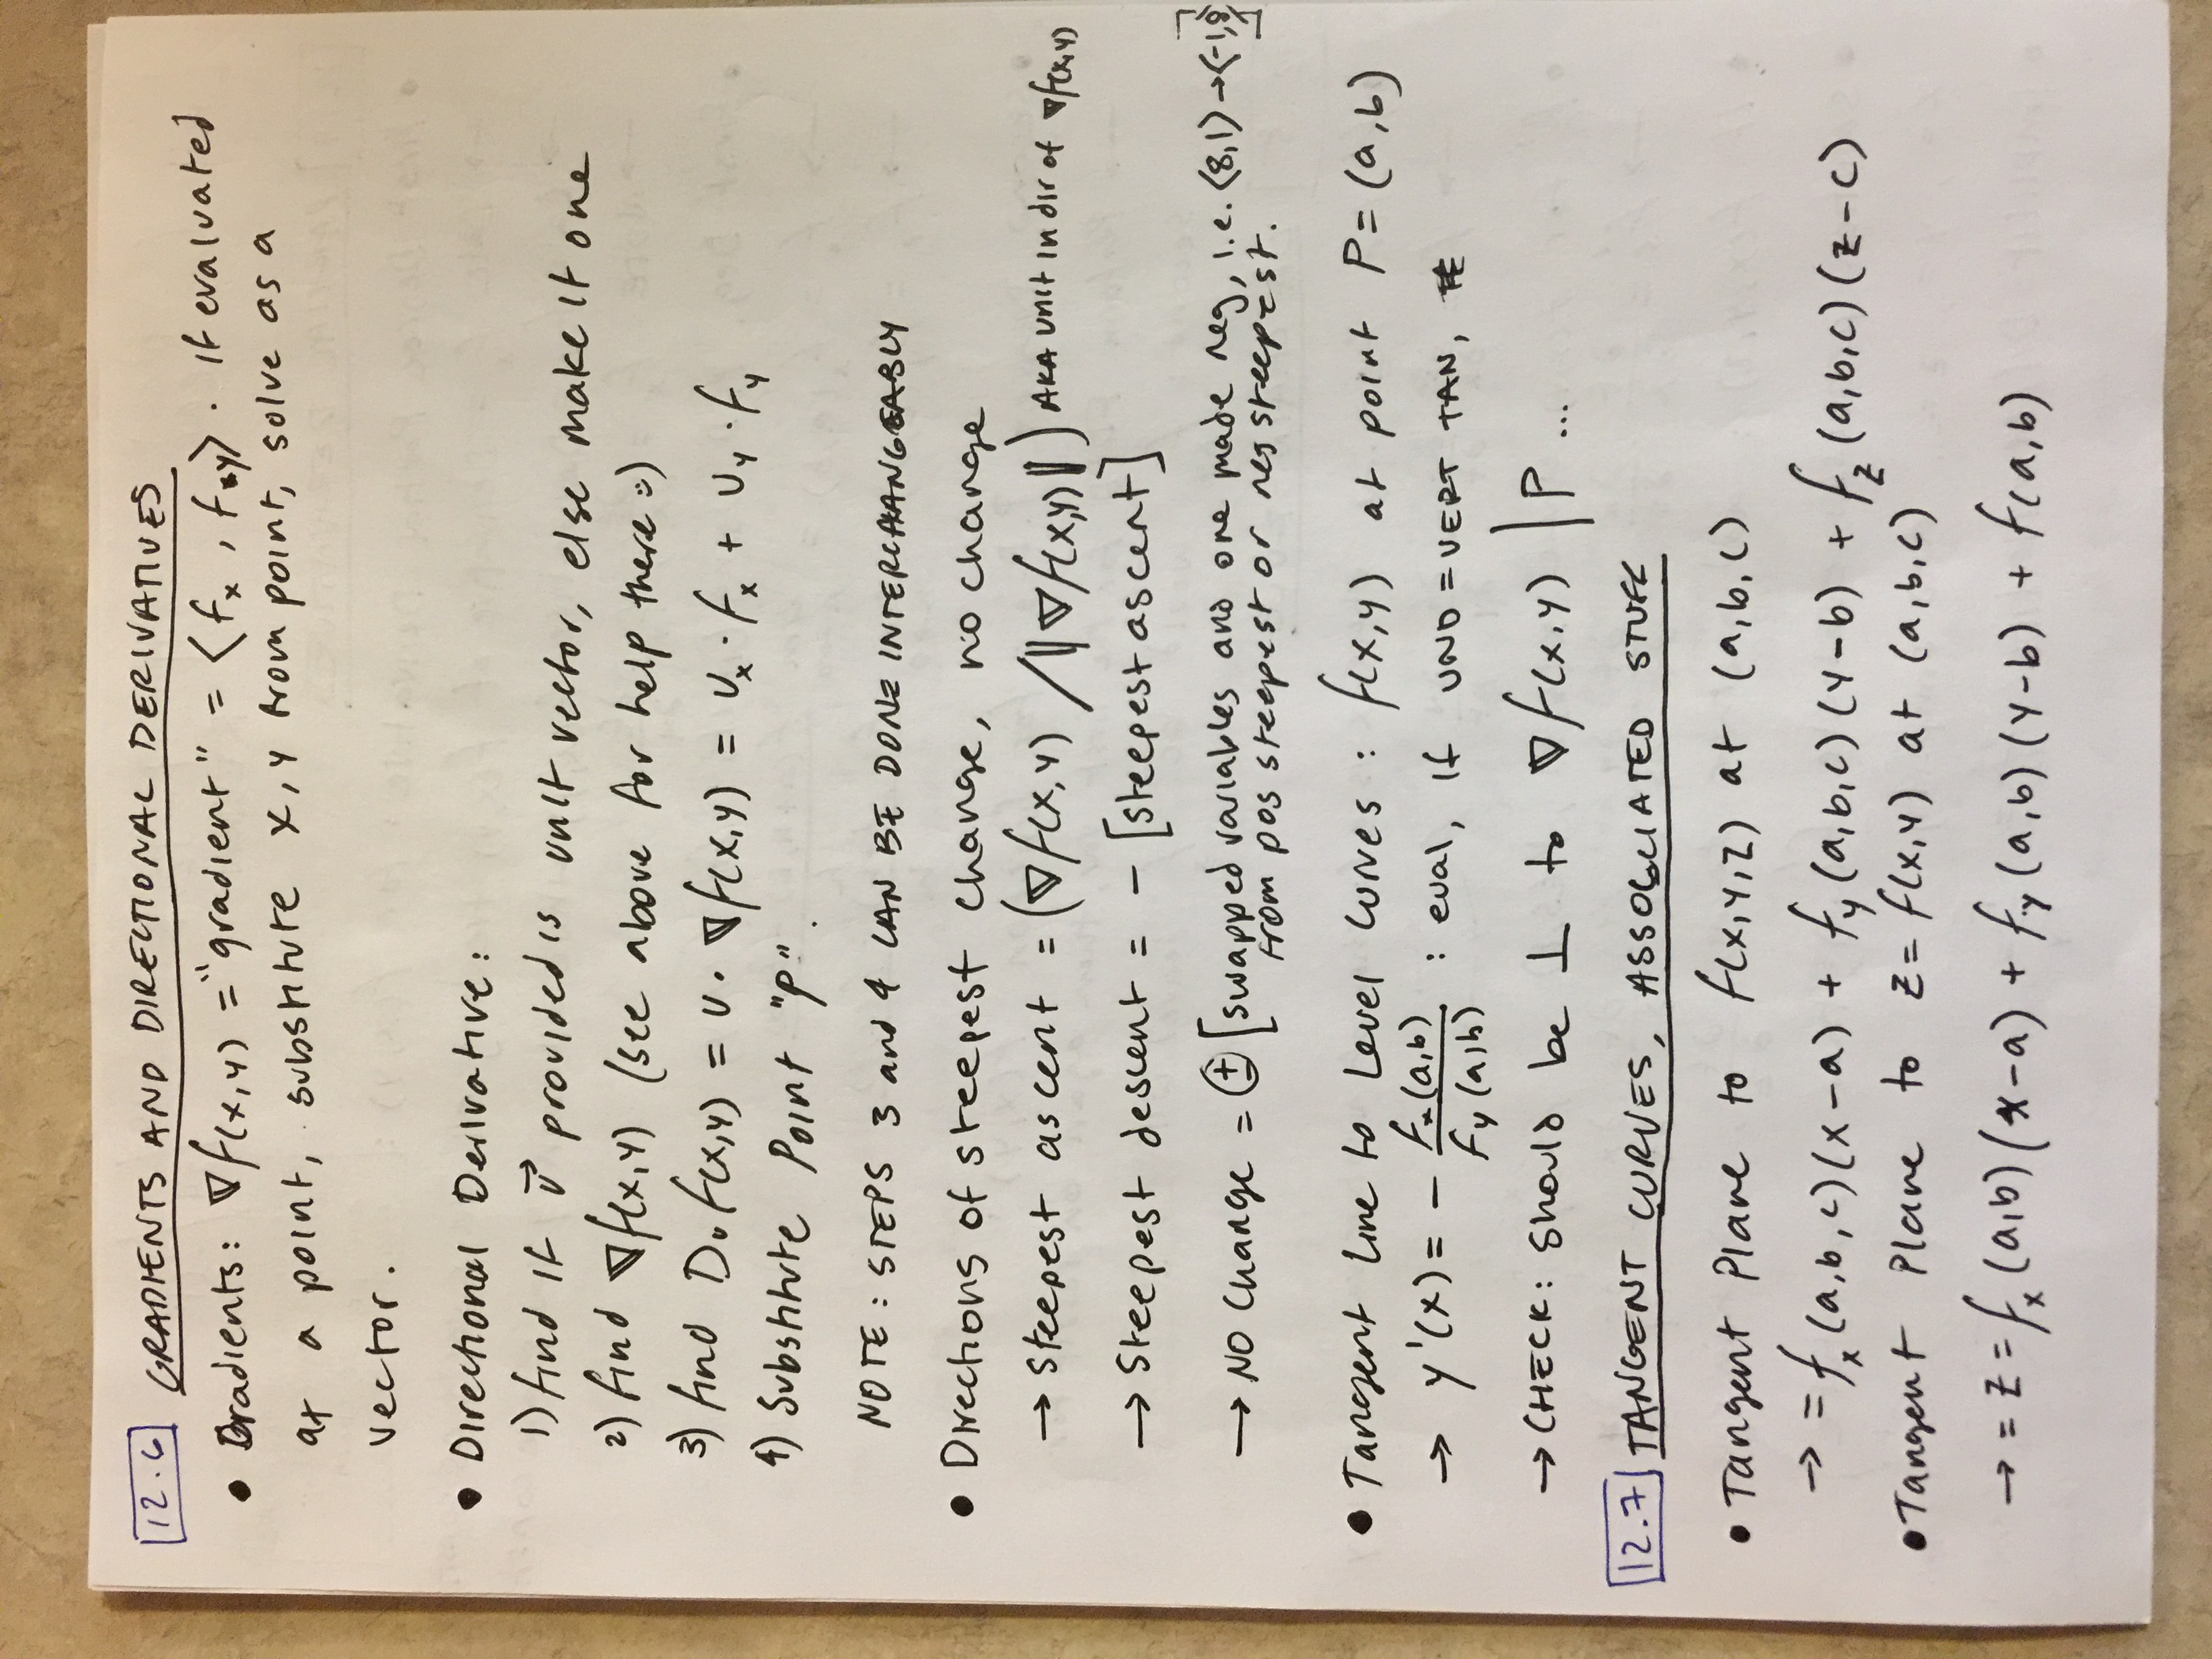 12.6 GRADIENTS AND DIRECTIONAL DERIVATIVES
• Gradients: ∇f(x,y) = "gradient" = ⟨fx, fy⟩. If evaluated
at a point, substitute x, y from point, solve as a
vector.
• Directional Derivative:
1) find if v⃗ provided is unit vector, else make it one
2) find ∇f(x,y) (see above for help there :)
3) find Duf(x,y) = u · ∇f(x,y) = Ux · fx + Uy · fy
4) Substitute Point "P".
NOTE: STEPS 3 and 4 CAN BE DONE INTERCHANGEABLY
• Directions of steepest change, no change
→ Steepest ascent = (∇f(x,y) / ‖∇f(x,y)‖) AKA unit in dir of ∇f(x,y)
→ Steepest descent = - [steepest ascent]
→ NO Change = ± [swapped variables and one made neg, i.e. ⟨8,1⟩ → ⟨-1,8⟩]
from pos steepest or neg steepest.
• Tangent Line to Level Curves: f(x,y) at point P = (a,b)
→ y'(x) = - fx(a,b) / fy(a,b) : eval, if UND = VERT TAN,
→ CHECK: Should be ⊥ to ∇f(x,y) | P ...
12.7 TANGENT CURVES, ASSOCIATED STUFF
• Tangent Plane to f(x,y,z) at (a,b,c)
→ = fx(a,b,c)(x-a) + fy(a,b,c)(y-b) + fz(a,b,c)(z-c)
• Tangent Plane to z = f(x,y) at (a,b,c)
→ = z = fx(a,b)(x-a) + fy(a,b)(y-b) + f(a,b)